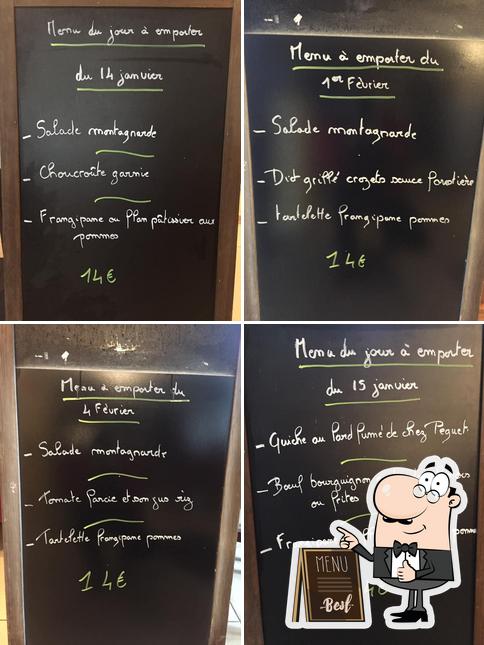 Menu du jour à emporter
du 14 janvier
- Salade montagnarde
- Choucroûte garnie
- Frangipane ou flan pâtissier aux
pommes
14€
Menu à emporter du
1er Février
- Salade montagnarde
- Diot grillé crozets sauce forestière
- tartelette frangipane pommes
14€
Menu à emporter du
4 Février
- Salade montagnarde
- Tomate farcie et son jus riz
- Tartelette frangipane pommes
14€
Menu du jour à emporter
du 15 janvier
- Quiche au lard fumé de chez Peguet
- Bœuf bourguignon
ou frites
MENU
Best